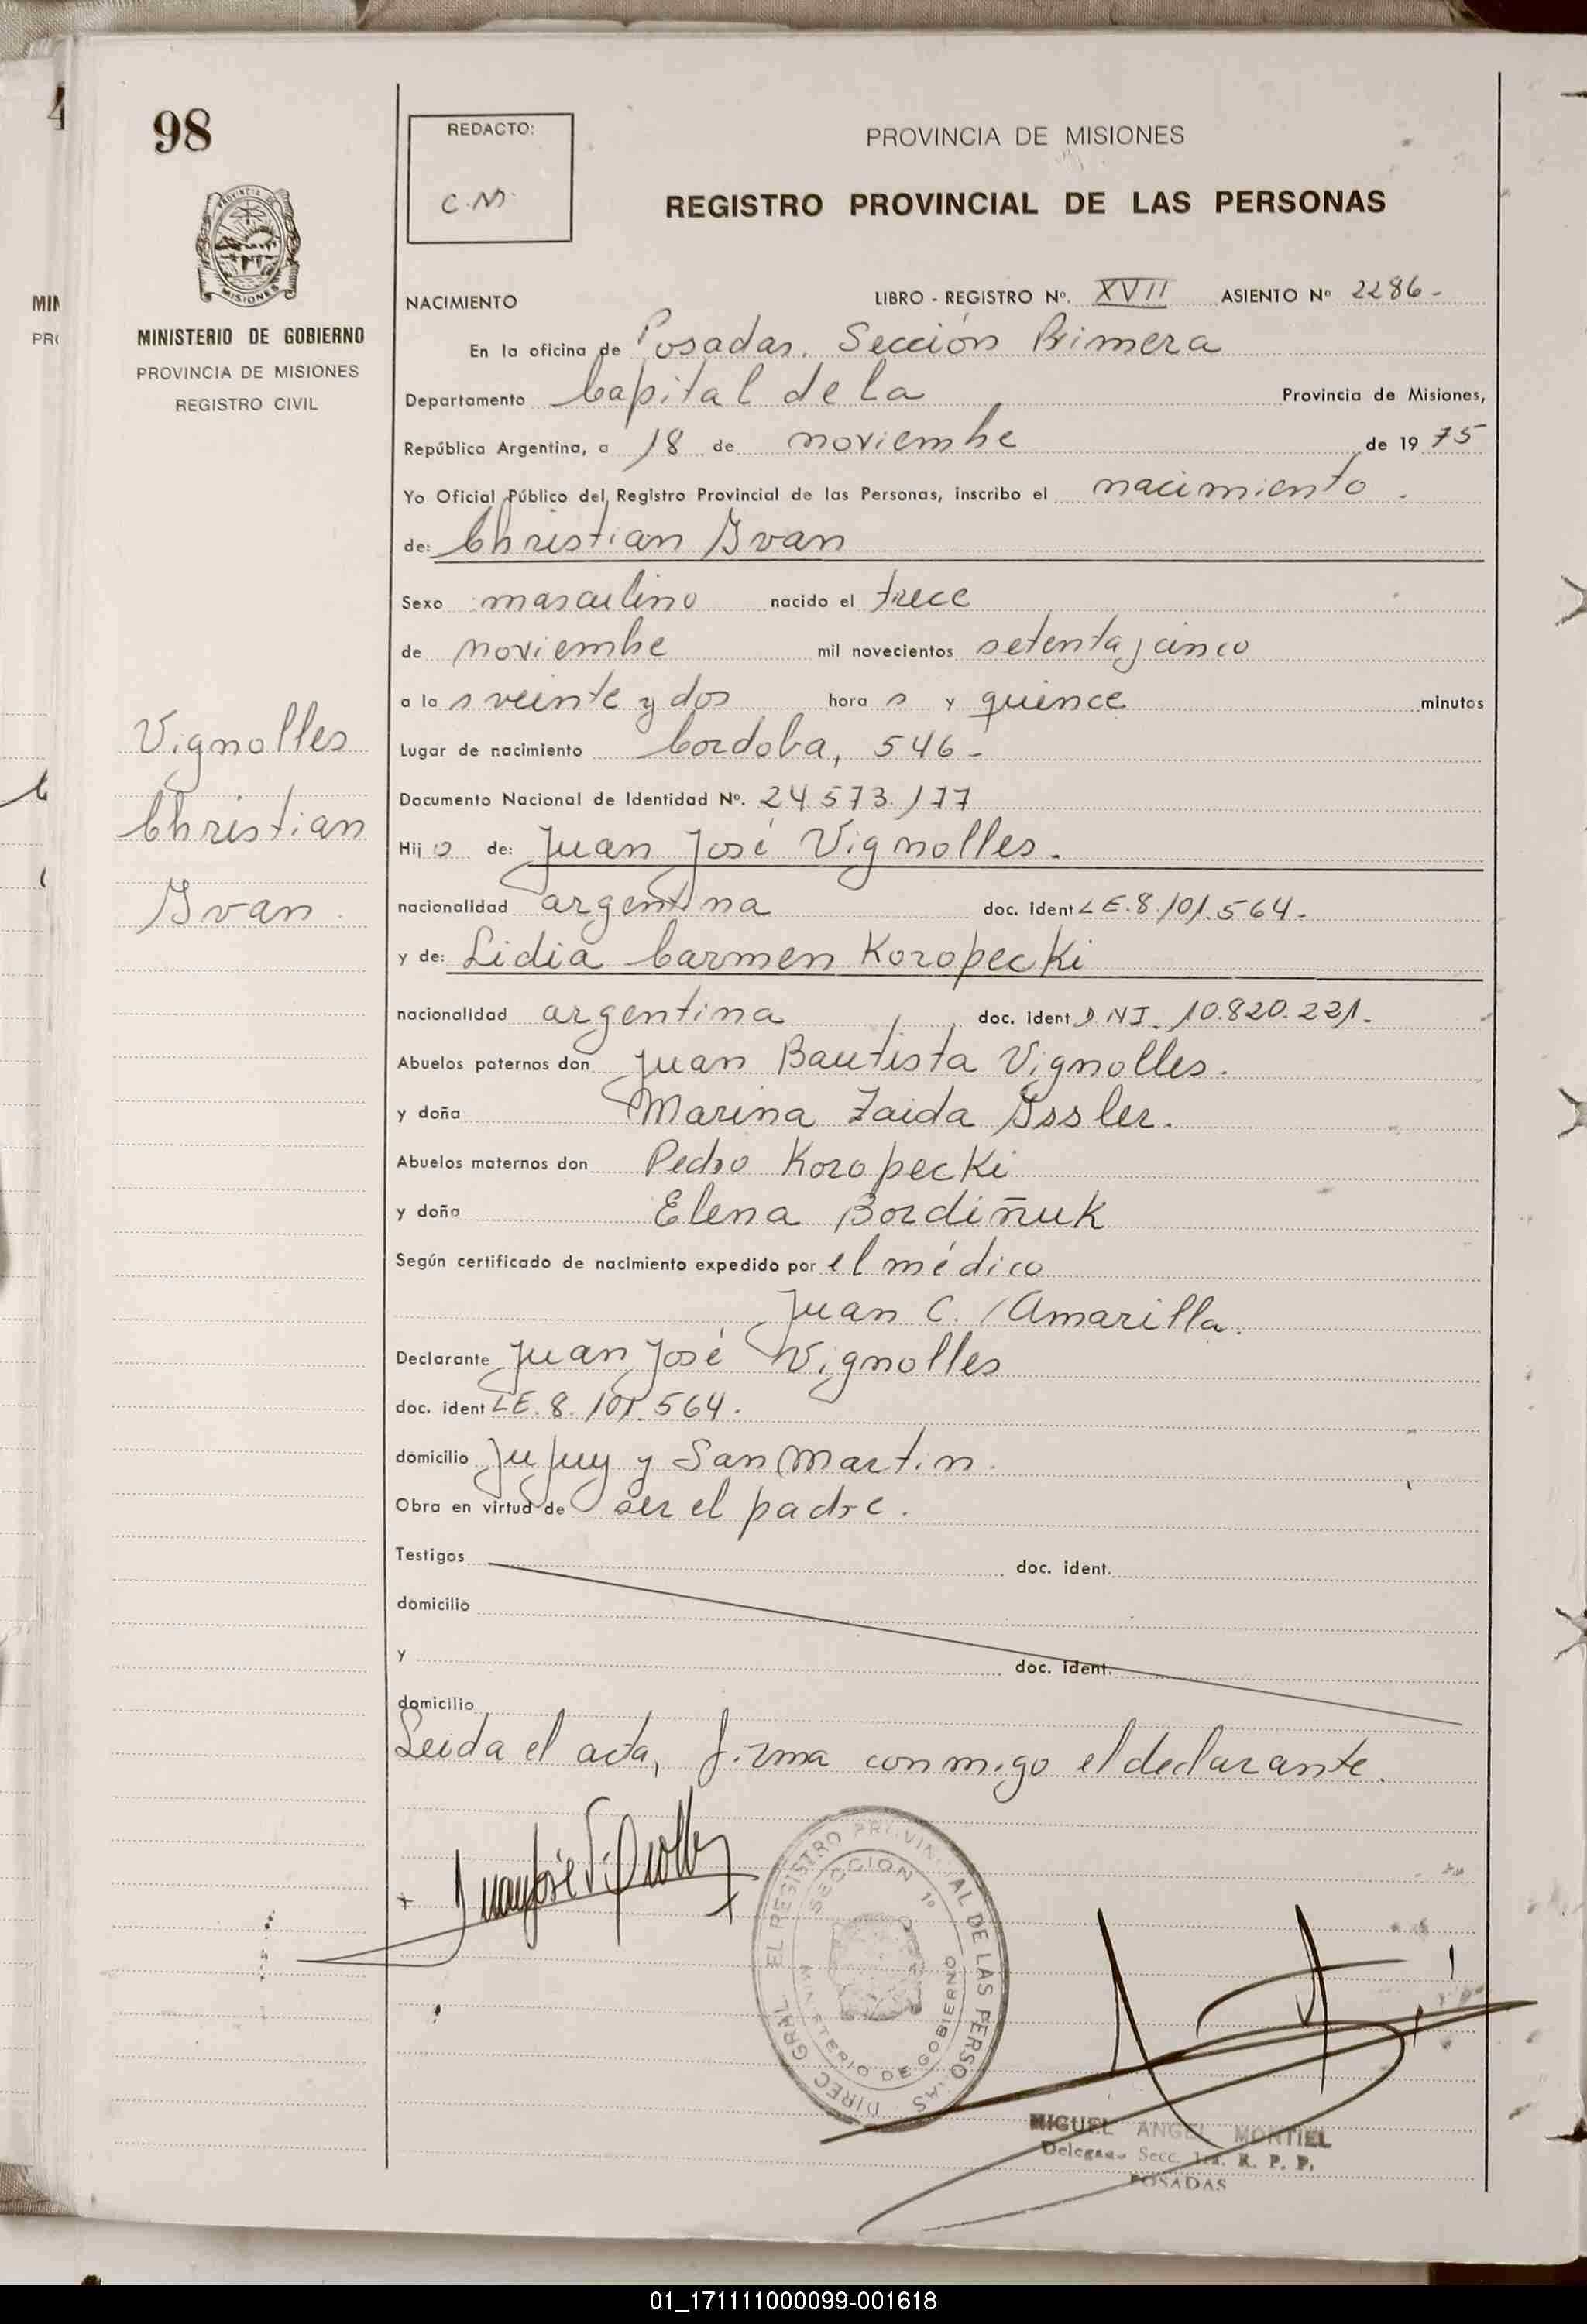 98
REDACTO:
C.M.
PROVINCIA DE MISIONES
REGISTRO PROVINCIAL DE LAS PERSONAS
PROVINCIA DE
MISIONES
MINISTERIO DE GOBIERNO
PROVINCIA DE MISIONES
REGISTRO CIVIL
NACIMIENTO LIBRO - REGISTRO Nº. XVII ASIENTO Nº 2286-
En la oficina de Posadas. Sección Primera
Departamento Capital de la Provincia de Misiones,
República Argentina, a 18 de noviembre de 1975
Yo Oficial Público del Registro Provincial de las Personas, inscribo el nacimiento.
de: Christian Ivan
Sexo masculino nacido el trece
de noviembre mil novecientos setenta y cinco
a las veinte y dos horas y quince minutos
Lugar de nacimiento Cordoba, 546-
Documento Nacional de Identidad Nº. 24.573.177
Hijo de: Juan José Vignolles.
nacionalidad argentina doc. ident LE.8.101.564-
y de: Lidia Carmen Koropecki
nacionalidad argentina doc. ident DNI. 10.820.221-
Abuelos paternos don Juan Bautista Vignolles.
y doña Marina Zaida Issler.
Abuelos maternos don Pedro Koropecki
y doña Elena Bordiñuk
Según certificado de nacimiento expedido por el médico
Juan C. Amarilla.
Declarante Juan José Vignolles
doc. ident LE.8.101.564.
domicilio Jujuy y San Martin.
Obra en virtud de ser el padre.
Testigos doc. ident.
domicilio
y doc. ident.
domicilio
Leida el acta, firma conmigo el declarante.
Vignolles
Christian
Ivan.
Juan José Vignolles
DIREC GRAL EL REGISTRO PROVINCIAL DE LAS PERSONAS
SECCION 1º
MINISTERIO DE GOBIERNO
MIGUEL ANGEL MONTIEL
Delegado Secc. 1ra. R. P. P.
POSADAS
01_171111000099-001618